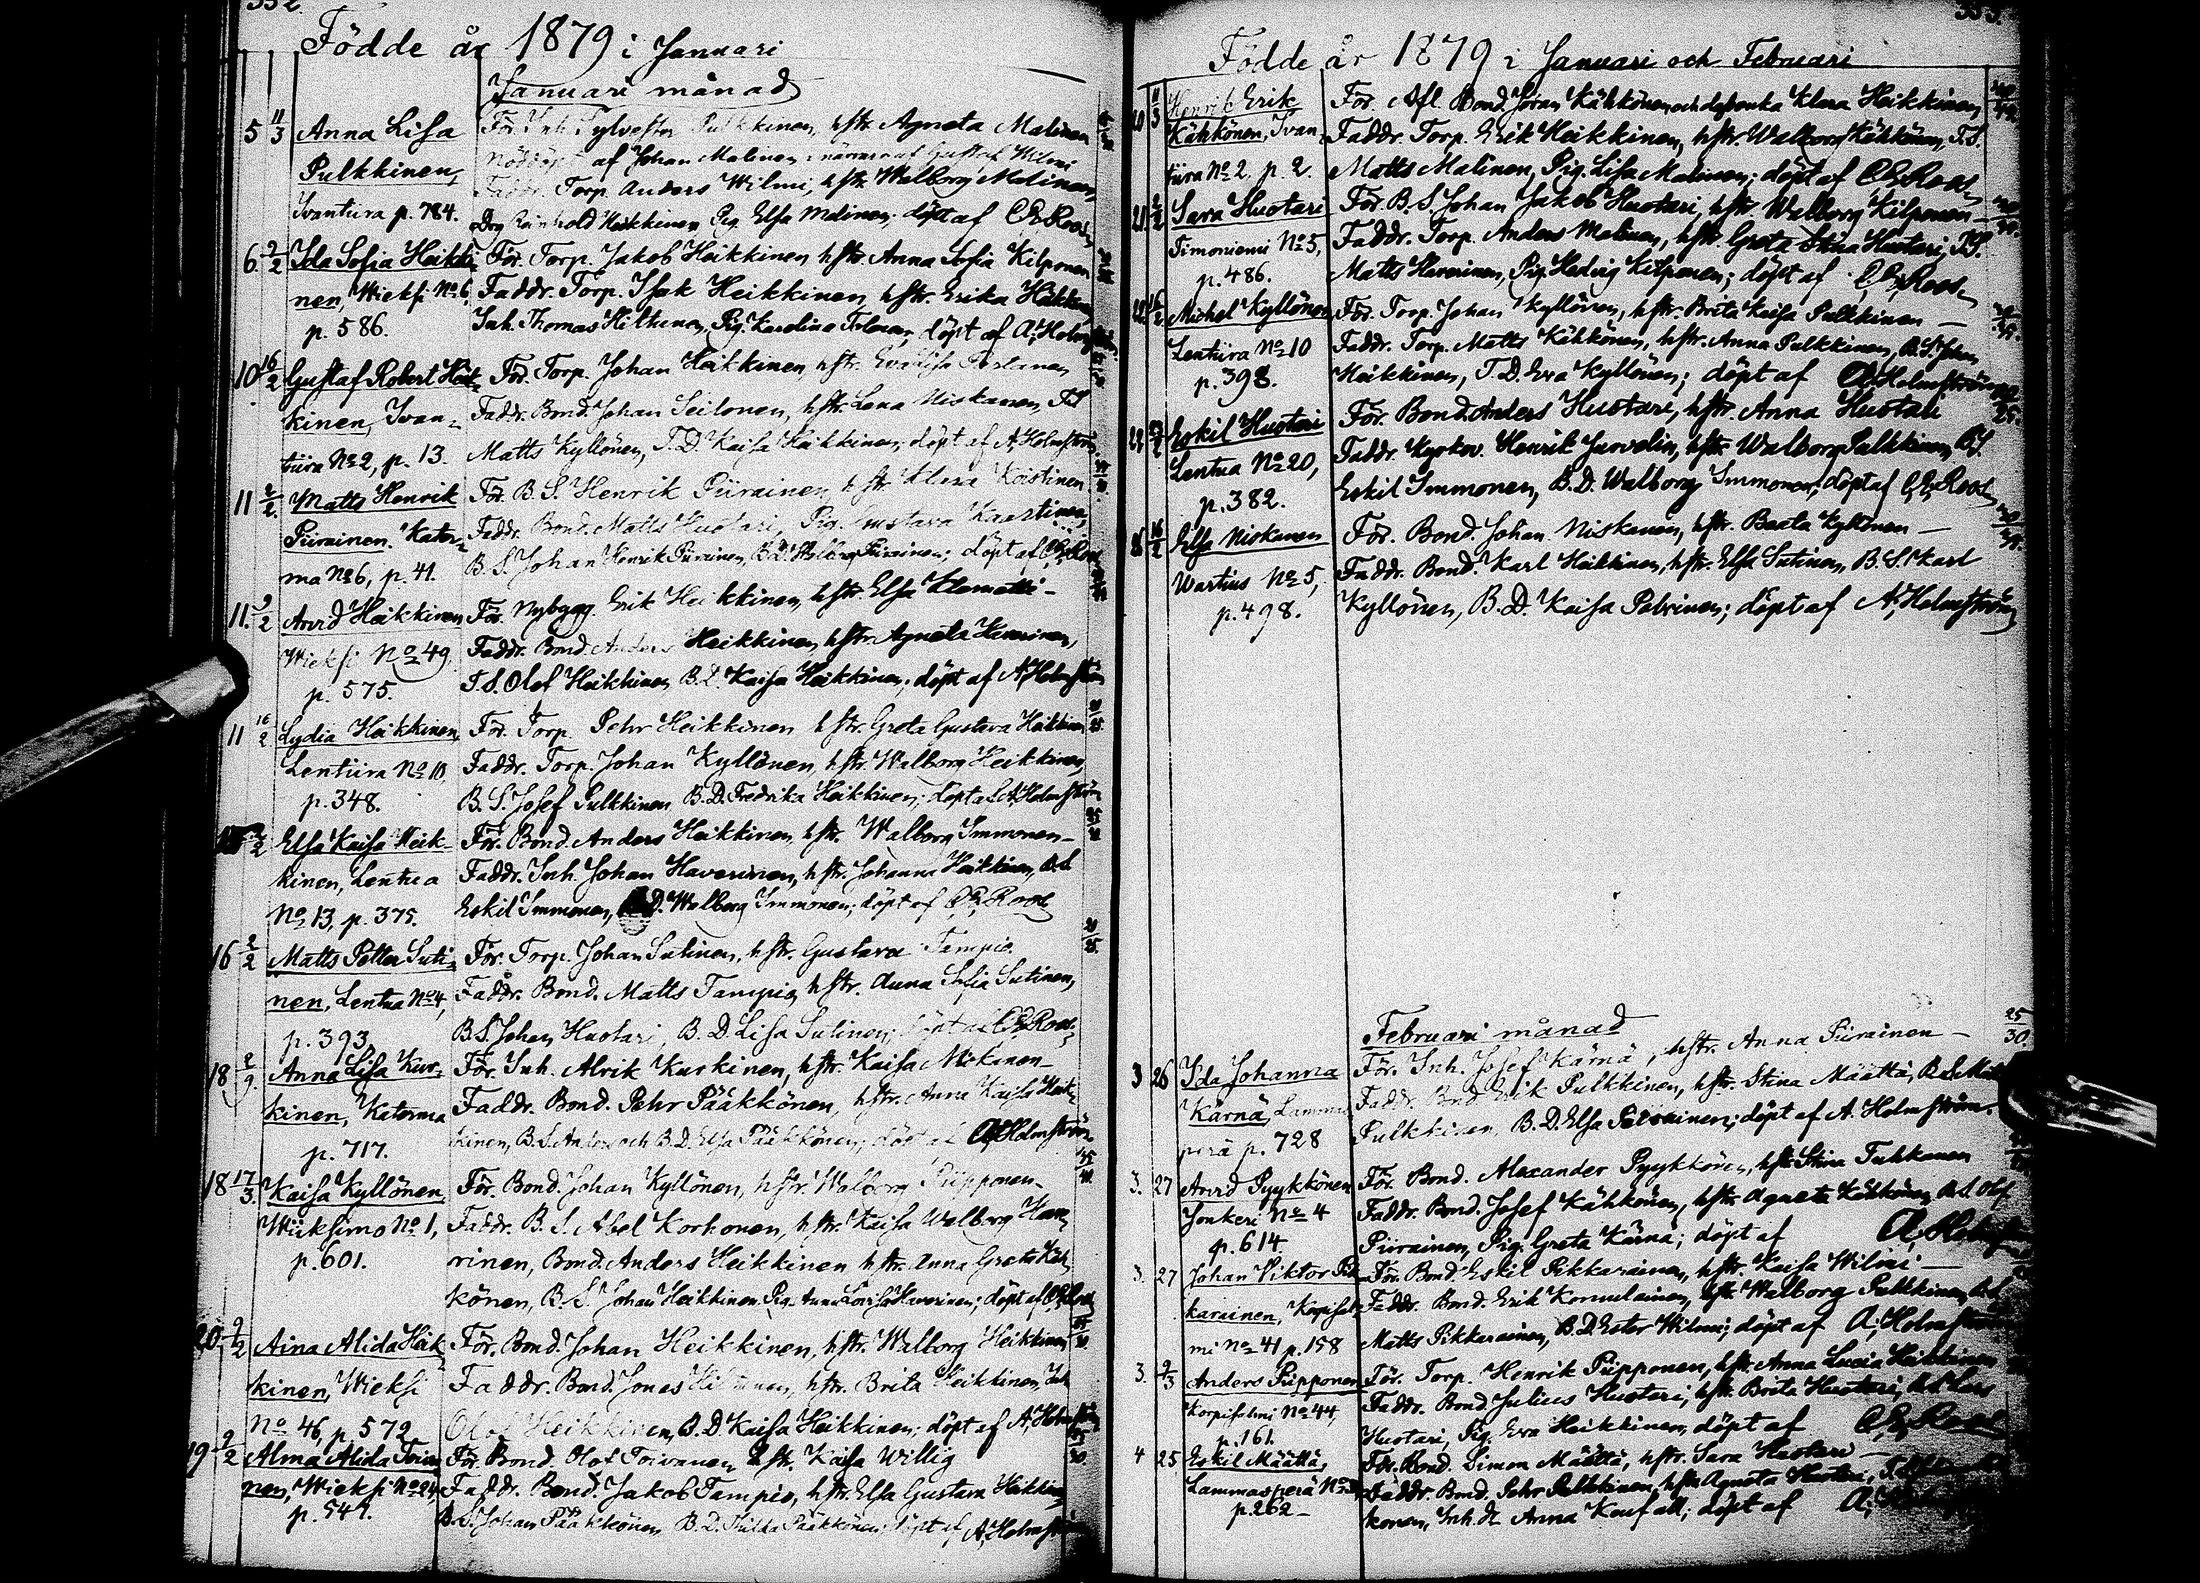 352
Födde år 1879 i Januari
Januari månad
5 11/3 Anna Lisa För. Inh. Sylvester Pulkkinen, hstr. Agneta Malinen
Pulkkinen, Nöddöpt af Johan Malinen, af Gustaf Wilmi
Faddr. Torp. Anders Wilmi, hstr. Walborg Malinen,
Ivantiira p. 784. Drg Reinhold Heikkinen Pig. Elsa Malinen; döpt af C.E. Roos
6. 2/2 Ida Sofia Heikki- För. Torp. Jakob Heikkinen hstr. Anna Sofia Kilponen
nen, Wieksi No 6, Faddr. Torp. Isak Heikkinen, hstr. Erika Heikkinen
p. 586. Inh. Thomas Hiltunen, Pig. Karolina döpt af A. Holmström
10 16/2 Gustaf Robert Heik- För. Torp. Johan Heikkinen, hstr. Eva Lisa
kinen, Ivan- Faddr. Bond. Johan Seilonen, hstr. Lena Niskanen, T.S.
tiira No 2, p. 13. Matts Kyllönen, T.D. Kaisa Heikkinen, döpt af A. Holmström
11 2/2. Matts Henrik För. B.S. Henrik Piirainen, hstr. Klara Kaistinen
Piirainen. Kater- Faddr. Bond. Matts Huotari, Pig. Gustava Kaartinen,
ma No 6, p. 41. B.S. Johan Henrik Piirainen, B.D. Walborg Piirainen; döpt af C.E. Roos
11. 9/2 Arvid Heikkinen För. Nybygg. Erik Heikkinen, hstr. Elsa Klemetti –
Wieksi No 49, Faddr. Bond. Anders Heikkinen, hstr. Agneta Haverinen,
p. 575. T.S. Olof Heikkinen B.D. Kaisa Heikkinen; döpt af A. Holmström
11 16/2 Lydia Heikkinen, För. Torp. Pehr Heikkinen hstr. Greta Gustava Heikkinen
Lentiira No 10. Faddr. Torp. Johan Kyllönen, hstr. Walborg Heikkinen,
p. 348. B.S. Josef Pulkkinen B.D. Fredrika Heikkinen; döpt af A. Holmström
Elsa Kaisa Heik- För. Bond. Anders Heikkinen, hstr. Walborg Immonen –
kinen, Lentua Faddr. Inh. Johan Haverinen, hstr. Johanna Heikkinen, B.S.
No 13, p. 375. Eskil Immonen, B.D. Walborg Immonen; döpt af C.E. Roos
16 2/2 Matts Petter Suti- För. Torp. Johan Sutinen, hstr. Gustava Tampio.
nen, Lentua No 4, Faddr. Bond. Matts Tampio, hstr. Anna Sofia Sutinen,
p. 393. B.S. Johan Huotari, B.D. Lisa Sutinen; döpt af C.E. Roos
18 2/9 Anna Lisa Kur- För. Inh. Alrik Kurkinen, hstr. Kaisa Niskanen –
kinen, Katerma Faddr. Bond. Pehr Pääkkönen, hstr. Anna Kaisa Heik-
p. 717. kinen, B.S. Anders och B.D. Elsa Pääkkönen; döpt af A. Holmström
18 17/3. Kaisa Kyllönen, För. Bond. Johan Kyllönen, hstr. Walborg Piipponen –
Wiiksimo No 1, Faddr. B.S. Abel Korhonen, hstr. Kaisa Walborg Have-
p. 601. rinen, Bond. Anders Heikkinen hstr. Anna Greta Käh-
könen, B.S. Johan Heikkinen Pig. Anna Lovisa Haverinen; döpt af C.E. Roos
20 9/2 Aina Alida Heik- För. Bond. Johan Heikkinen, hstr. Walborg Heikkinen
kinen, Wieksi Faddr. Bond. Jonas hstr. Brita Heikkinen, Inh.
No 46, p. 572. Olof Heikkinen, B.D. Kaisa Heikkinen; döpt af A. Holmström
19 9/2 Alma Alida Toiva- För. Bond. Olof Toivanen hstr. Kaisa Willig
nen, Wieksi No 24, Faddr. Bond. Jakob Tampio, hstr. Elsa Gustava Heikkinen
p. 547. B.S. Johan Pääkkönen B.D. Hilda Pääkkönen; döpt af A. Holmström
353.
Födde år 1879 i Januari och Februari
20 11/3 Henrik Erik För. Afl. Bond. Jöran Kähkönen och dess enka Klara Heikkinen,
Kähkönen, Ivan- Faddr. Torp. Erik Heikkinen, hstr. Walborg Kähkönen, T.S.
tiira No 2, p. 2. Matts Malinen, Pig. Lisa Malinen; döpt af C.E. Roos
21. 2/2 Sara Huotari För. B.S. Johan Jakob Huotari, hstr. Walborg Kilponen –
Timoniemi No 5, Faddr. Torp. Anders Malinen, hstr. Greta Stina Huotari, T.S.
p. 486. Matts Haverinen, Pig. Hedvig Kilponen; döpt af C.E. Roos
22. 16/2 Michel Kyllönen För. Torp. Johan Kyllönen, hstr. Brita Kaisa Pulkkinen –
Lentiira No 10 Faddr. Torp. Matts Kähkönen, hstr. Anna Pulkkinen, B.S. Johan
p. 398. Heikkinen, T.D. Eva Kyllönen; döpt af A. Holmström
22 Eskil Huotari För. Bond. Anders Huotari, hstr. Anna Huotari
Lentua No 20, Faddr. Kyrkov. Henrik Jurvelin, hstr. Walborg Pulkkinen, B.S.
p. 382. Eskil Immonen, B.D. Walborg Immonen; döpt af C.E. Roos
16/2 Elsa Niskanen För. Bond. Johan Niskanen, hstr. Beata Kyllönen –
Wartius No 5, Faddr. Bond. Karl Heikkinen, hstr. Elsa Sutinen, B.S. Karl
p. 498. Kyllönen, B.D. Kaisa Polvinen; döpt af A. Holmström
Februari månad
3 26 Ida Johanna För. Inh. Josef Kärnä, hstr. Anna Piirainen –
Kärnä, Lammas- Faddr. Bnd Erik Pulkkinen, hstr. Stina Määttä, B.S. Matts
perä p. 728 Pulkkinen, B.D. Elsa Piirainen; döpt af A. Holmström.
3. 27 Arvid Pyykkönen För. Bond. Alexander Pyykkönen, hstr. Stina Tuhkanen
Jonkeri No 4 Faddr. Bond. Josef Kähkönen, hstr. Agneta Kähkönen, B.S. Olof
p. 614. Piirainen, Pig. Greta Kärnä; döpt af A. Holmström
3. 27 Johan Viktor Pik- För. Bond. Eskil Pikkarainen, hstr. Kaisa Wilmi –
karainen, Korpisal- Faddr. Bond. Erik Komulainen, hstr. Walborg Pulkkinen, B.S.
mi No 41 p. 158 Matts Pikkarainen, B.D. Ester Wilmi; döpt af A. Holmström
3. 9/3 Anders Piipponen För. Torp. Henrik Piipponen, hstr. Anna Lucia Heikkinen
Korpisalmi No 44, Faddr. Bond. Julius Huotari, hstr. Brita Huotari, B.S. Lars
p. 161. Huotari, Pig. Eva Heikkinen, döpt af C.E. Roos
4 25 Eskil Määttä, För. Bond. Simon Määttä, hstr. Sara Huotari –
Lammasperä No Faddr. Bond. Pehr Pulkkinen, hstr. Agneta Huotari,
p. 262 – konen, Inh. D. Anna Kaufald; döpt af A. Holmström